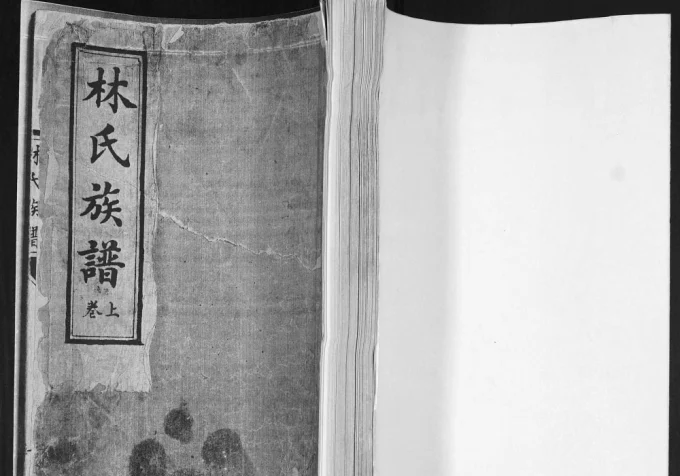 林氏族譜
卷上
林氏族譜